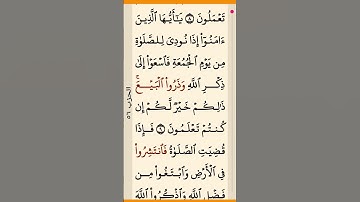 تَعْمَلُونَ ٨ يَٰٓأَيُّهَا ٱلَّذِينَ
ءَامَنُوٓا۟ إِذَا نُودِىَ لِلصَّلَوٰةِ
مِن يَوْمِ ٱلْجُمُعَةِ فَٱسْعَوْا۟ إِلَىٰ
ذِكْرِ ٱللَّهِ وَذَرُوا۟ ٱلْبَيْعَ ۚ
ذَٰلِكُمْ خَيْرٌ لَّكُمْ إِن
كُنتُمْ تَعْلَمُونَ ٩ فَإِذَا
قُضِيَتِ ٱلصَّلَوٰةُ فَٱنتَشِرُوا۟
فِى ٱلْأَرْضِ وَٱبْتَغُوا۟ مِن
فَضْلِ ٱللَّهِ وَٱذْكُرُوا۟ ٱللَّهَ
الحزب ٥٦